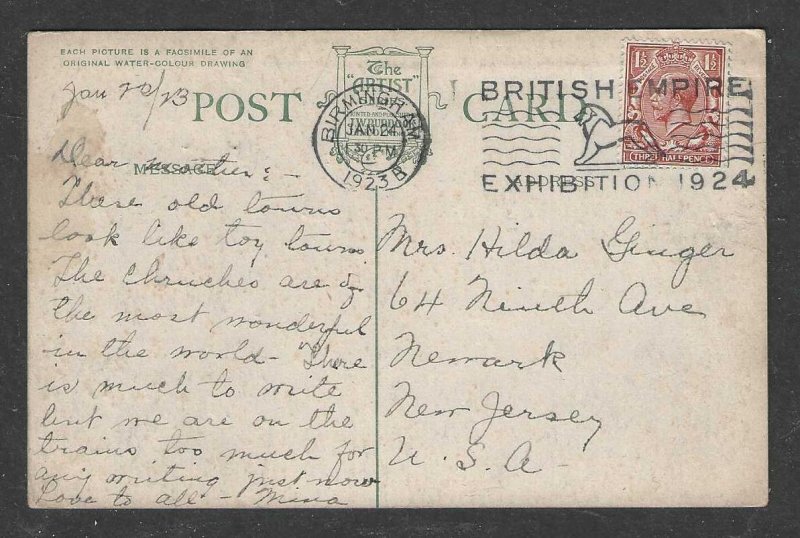 EACH PICTURE IS A FACSIMILE OF AN
ORIGINAL WATER-COLOUR DRAWING
The
"ARTIST"
POST CARD
BIRMINGHAM
JAN 24
30 PM
1923 B
BRITISH EMPIRE
EXHIBITION 1924
1½ 1½
THREE HALFPENCE
MESSAGE
ADDRESS
Jan /23
Dear mother: -
These old towns
look like toy towns
The chruches are
the most wonderful
in the world - There
is much to write
but we are on the
trains too much for
any writing just now
Love to all - Mina
Mrs. Hilda Ginger
64 Ninth Ave
Newark
New Jersey
U. S. A -